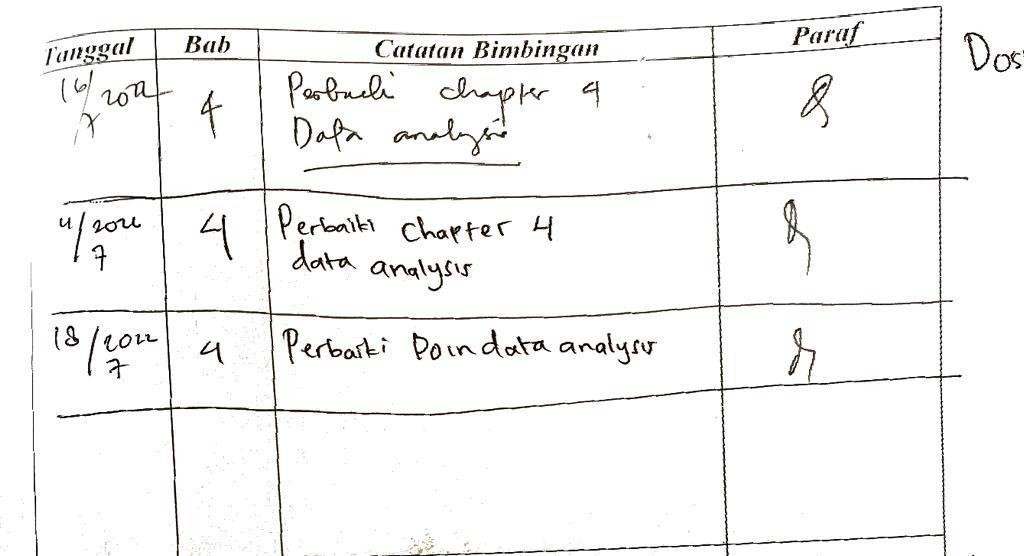 Tanggal Bab Catatan Bimbingan Paraf
16/7 2022 4 Perbaiki chapter 4
Data analysis
11/7 2022 4 Perbaiki Chapter 4
data analysis
18/7 2022 4 Perbaiki Poin data analysis
Dos